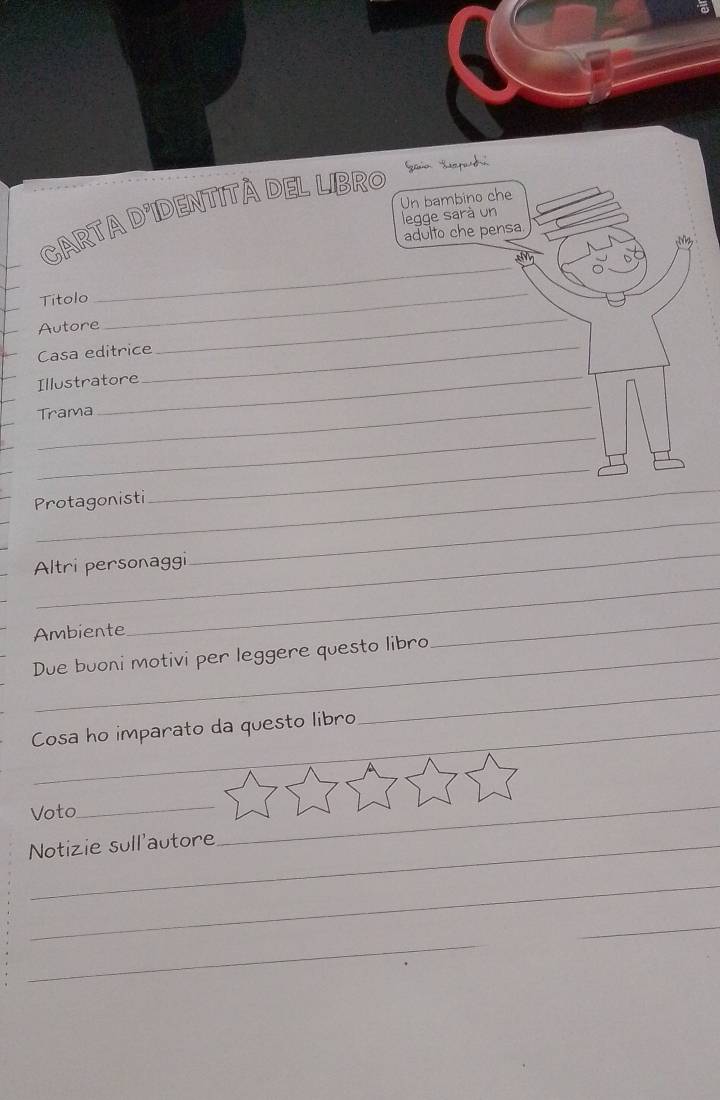 CARTA D'IDENTITÀ DEL LIBRO
Un bambino che
legge sarà un
adulto che pensa.
Titolo
Autore
Casa editrice
Illustratore
Trama
Protagonisti
Altri personaggi
Ambiente
Due buoni motivi per leggere questo libro
Cosa ho imparato da questo libro
Voto
Notizie sull'autore